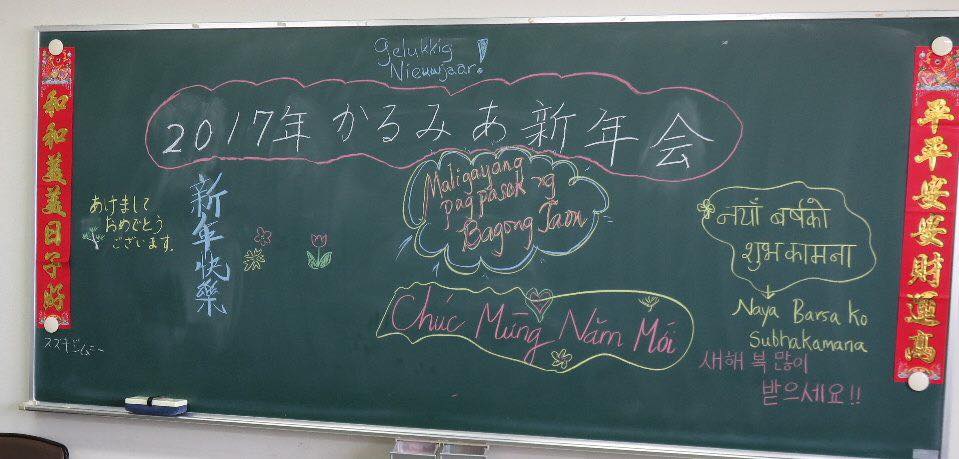 Gelukkig
Nieuwjaar!
2017年 かるみあ新年会
和和美美日子好
あけまして
おめでとう
ございます。
新年快樂
Maligayang
pagpasok ng
Bagong Taon
Chúc Mừng Năm Mới
नयाँ बर्षको
शुभकामना
Naya Barsa Ko
Subhakamana
새해 복 많이
받으세요!!
平平安安財運高